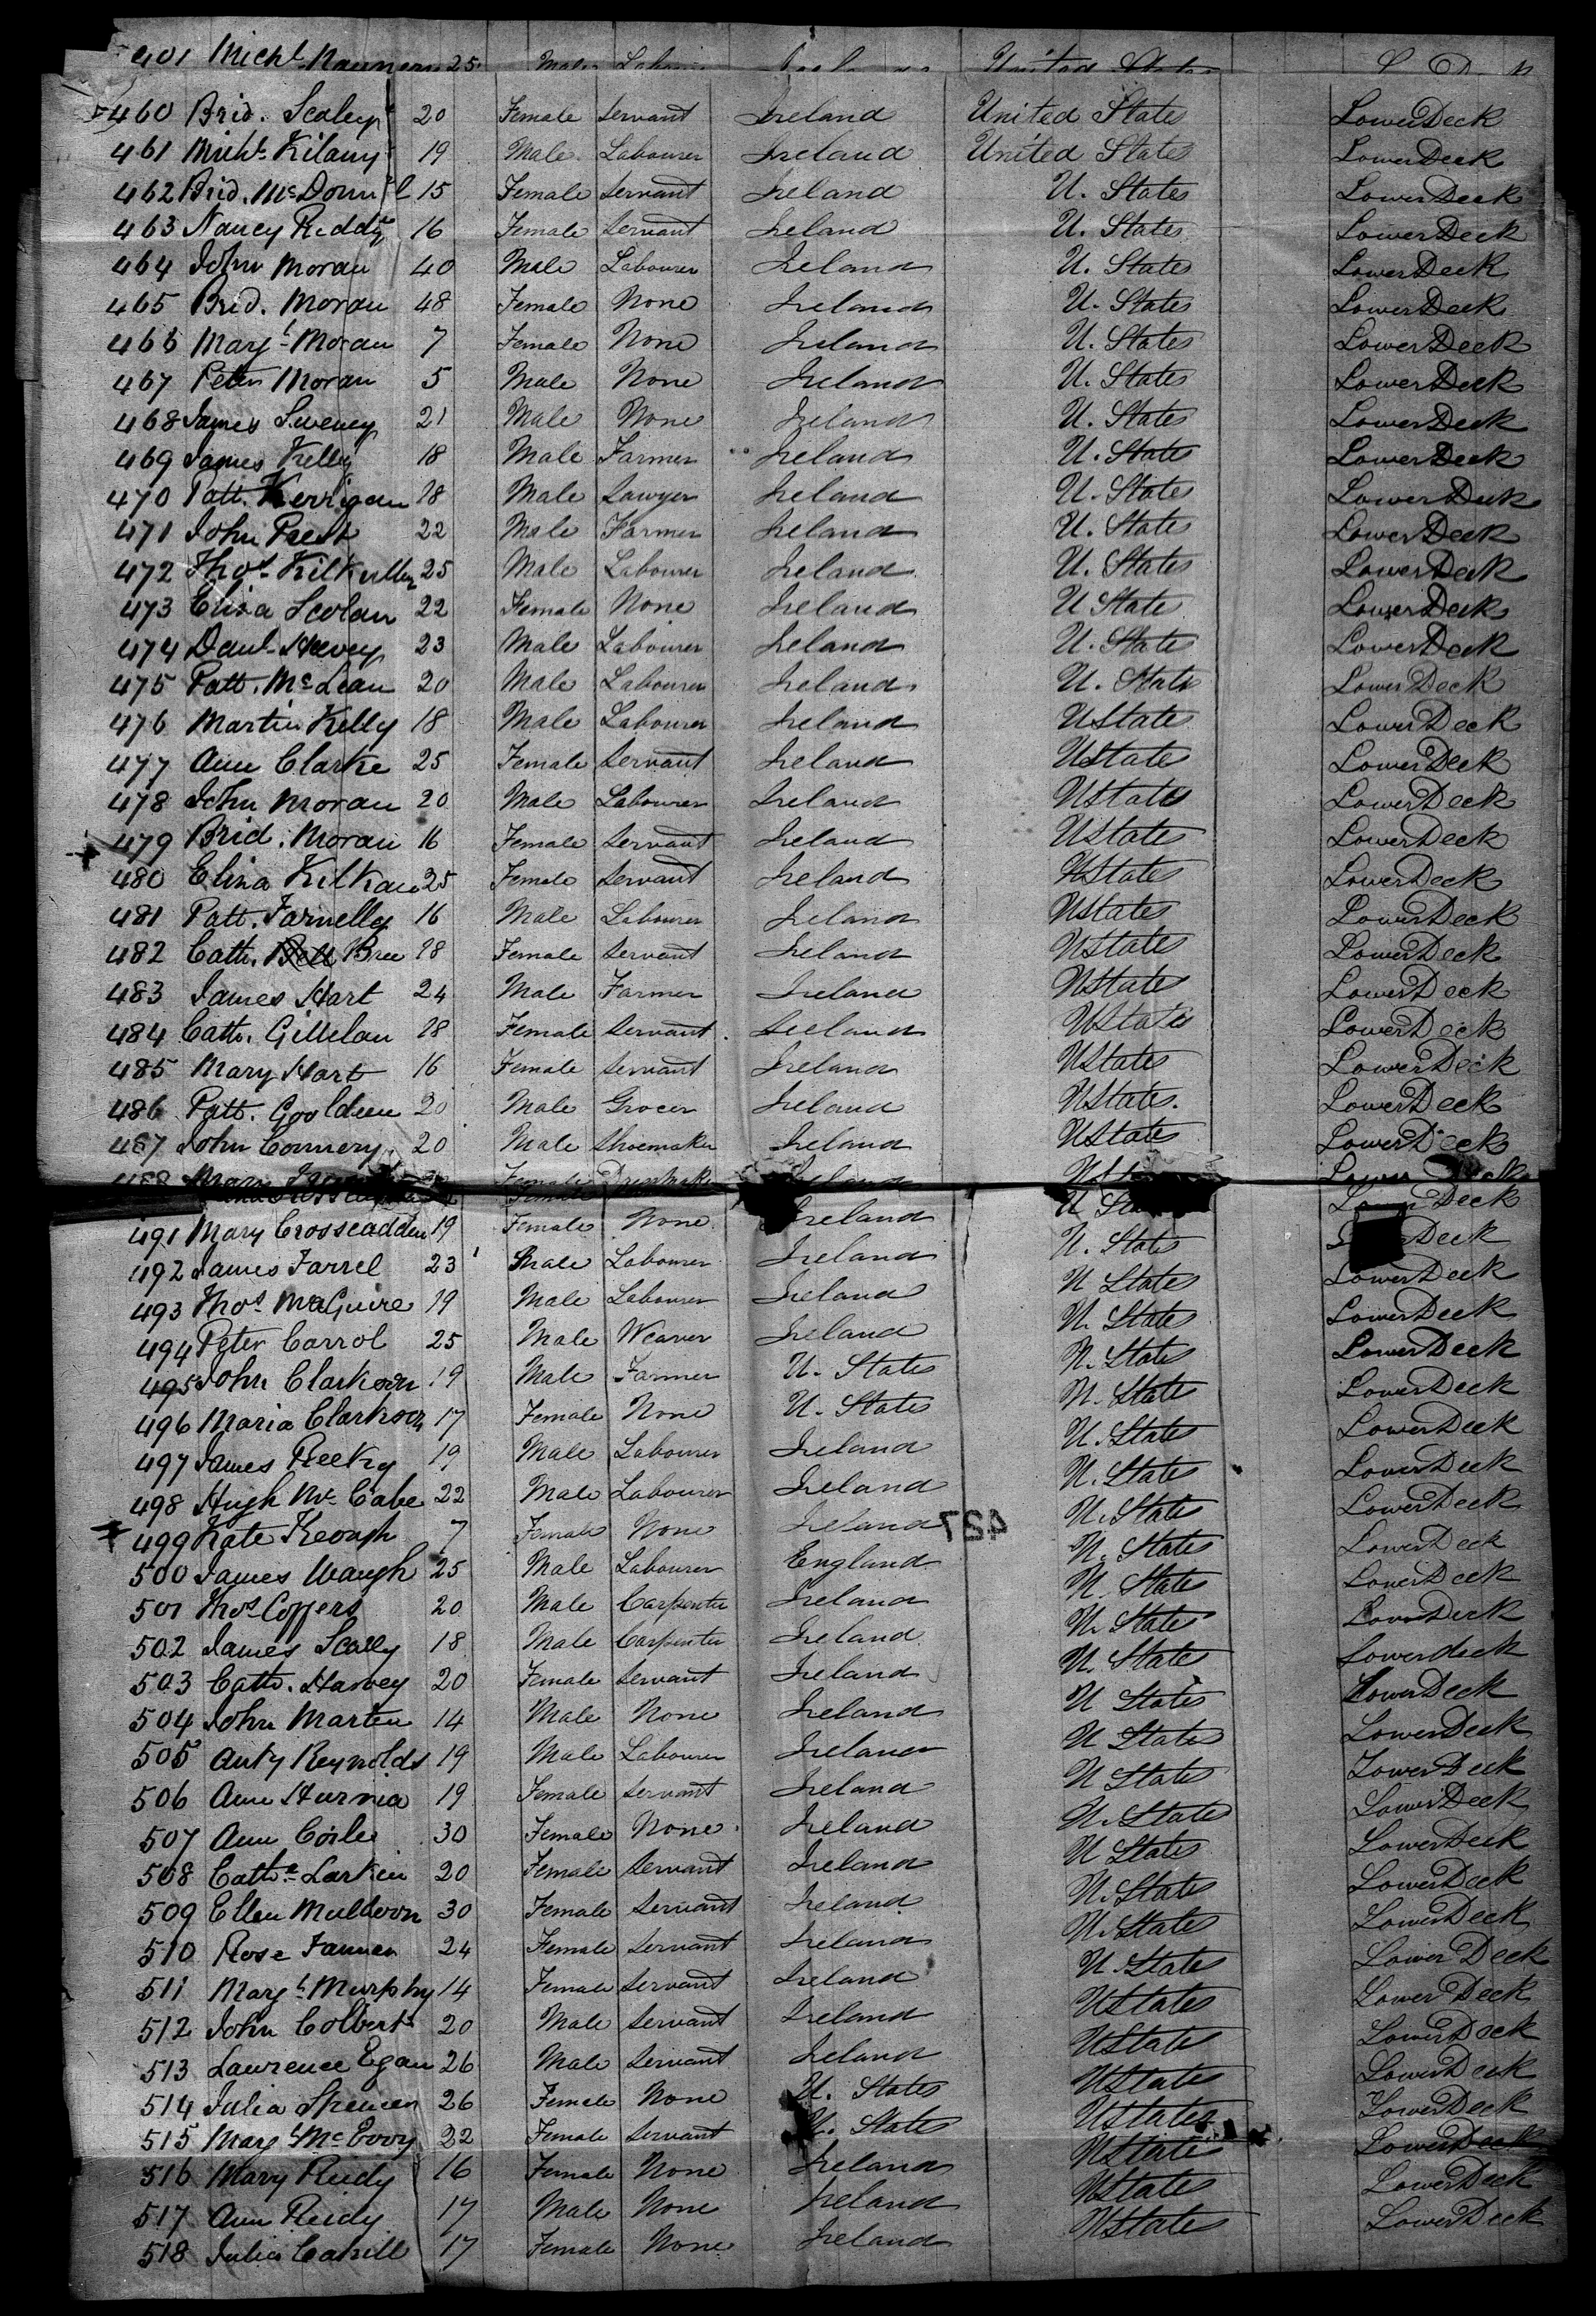 401 Michl 25 Male United States
460 Brid. Scaley 20 Female Servant Ireland United States Lower Deck
461 Michl Kilany 19 Male Labourer Ireland United States Lower Deck
462 Brid. McDonnel 15 Female Servant Ireland U. States Lower Deck
463 Nancy Reddy 16 Female Servant Ireland U. States Lower Deck
464 John Moran 40 Male Labourer Ireland U. States Lower Deck
465 Brid. Moran 48 Female None Ireland U. States Lower Deck
466 Margt Moran 7 Female None Ireland U. States Lower Deck
467 Peter Moran 5 Male None Ireland U. States Lower Deck
468 James Sweney 21 Male None Ireland U. States Lower Deck
469 James Kelly 18 Male Farmer Ireland U. States Lower Deck
470 Patt. Kerrigan 28 Male Sawyer Ireland U. States Lower Deck
471 John 22 Male Farmer Ireland U. States Lower Deck
472 Thos Kilkullen 25 Male Labourer Ireland U. States Lower Deck
473 Eliza Scolan 22 Female None Ireland U State Lower Deck
474 Danl Hevey 23 Male Labourer Ireland U. State Lower Deck
475 Patt. McLean 20 Male Labourer Ireland U. States Lower Deck
476 Martin Kelly 18 Male Labourer Ireland U States Lower Deck
477 Ann Clarke 25 Female Servant Ireland U States Lower Deck
478 John Moran 20 Male Labourer Ireland U States Lower Deck
479 Brid. Moran 16 Female Servant Ireland U States Lower Deck
480 Eliza Kilkan 25 Female Servant Ireland U States Lower Deck
481 Patt. Farnelly 16 Male Labourer Ireland U States Lower Deck
482 Cath. Bree 28 Female Servant Ireland U States Lower Deck
483 James Hart 24 Male Farmer Ireland U States Lower Deck
484 Cath. Gillelan 28 Female Servant Ireland U States Lower Deck
485 Mary Hart 16 Female Servant Ireland U States Lower Deck
486 Patt. Gooldeen 20 Male Grocer Ireland U States. Lower Deck
487 John Connery 20 Male Shoemaker Ireland U States Lower Deck
488 Female Dressmaker Ireland Lower Deck
491 Mary Crosscadden 19 Female None Ireland U. States Deck
492 James Farrel 23 Male Labourer Ireland U States Lower Deck
493 Thos McGuire 19 Male Labourer Ireland U. States Lower Deck
494 Peter Carrol 25 Male Weaver Ireland U. States Lower Deck
495 John Clarkson 19 Male Farmer U. States U. States Lower Deck
496 Maria Clarkson 17 Female None U. States U. States Lower Deck
497 James 19 Male Labourer Ireland U. States Lower Deck
498 Hugh McCabe 22 Male Labourer Ireland U. States Lower Deck
499 Kate Keough 7 Female None Ireland U. States Lower Deck
427
500 James Waugh 25 Male Labourer England U. States Lower Deck
501 Thos Coffers 20 Male Carpenter Ireland U. States Lower Deck
502 James Scally 18 Male Carpenter Ireland U. States Lower deck
503 Cath. Harvey 20 Female Servant Ireland U States Lower Deck
504 John Marten 14 Male None Ireland U States Lower Deck
505 Anty Reynolds 19 Male Labourer Ireland U States Lower Deck
506 Ann Hurnia 19 Female Servant Ireland U. States Lower Deck
507 Ann Corle 30 Female None Ireland U States Lower Deck
508 Cathe Larkin 20 Female Servant Ireland U. States Lower Deck
509 Ellen Muldoon 30 Female Servant Ireland U. States Lower Deck
510 Rose Fannen 24 Female Servant Ireland U. States Lower Deck
511 Margt Murphy 14 Female Servant Ireland U States Lower Deck
512 John Colbert 20 Male Servant Ireland U States Lower Deck
513 Lawrence Egan 26 Male Servant Ireland U States Lower Deck
514 Julia Spencer 26 Female None U. States U States Lower Deck
515 Margt McEvoy 22 Female Servant U. States U States Lower Deck
516 Mary Reidy 16 Female None Ireland U States Lower Deck
517 Ann Reidy 17 Male None Ireland U States Lower Deck
518 Julia Cahill 17 Female None Ireland